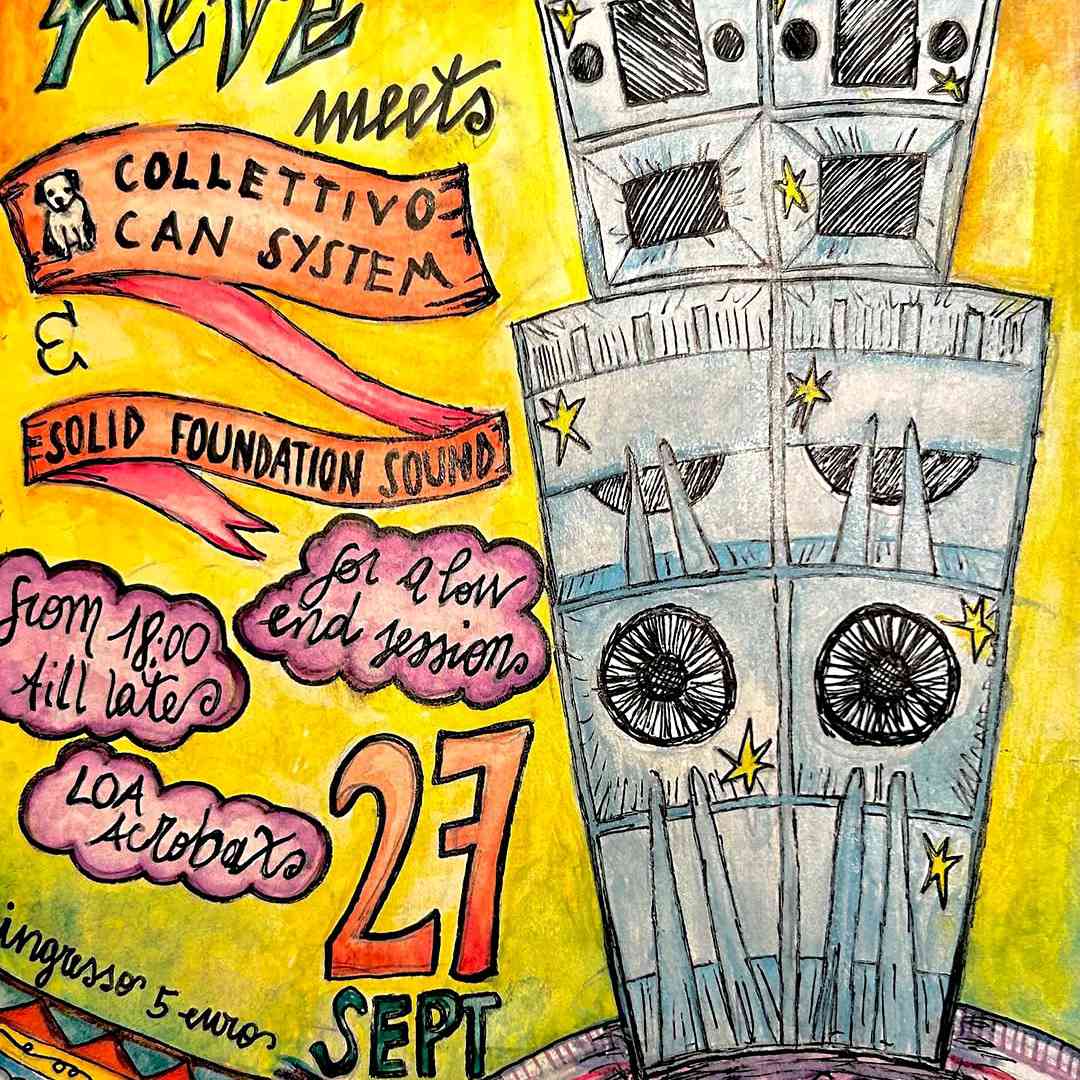 meets
COLLETTIVO
CAN SYSTEM
&
SOLID FOUNDATION SOUND
for a low
end session
from 18:00
till late
LOA
Acrobax
27
SEPT
ingresso 5 euro